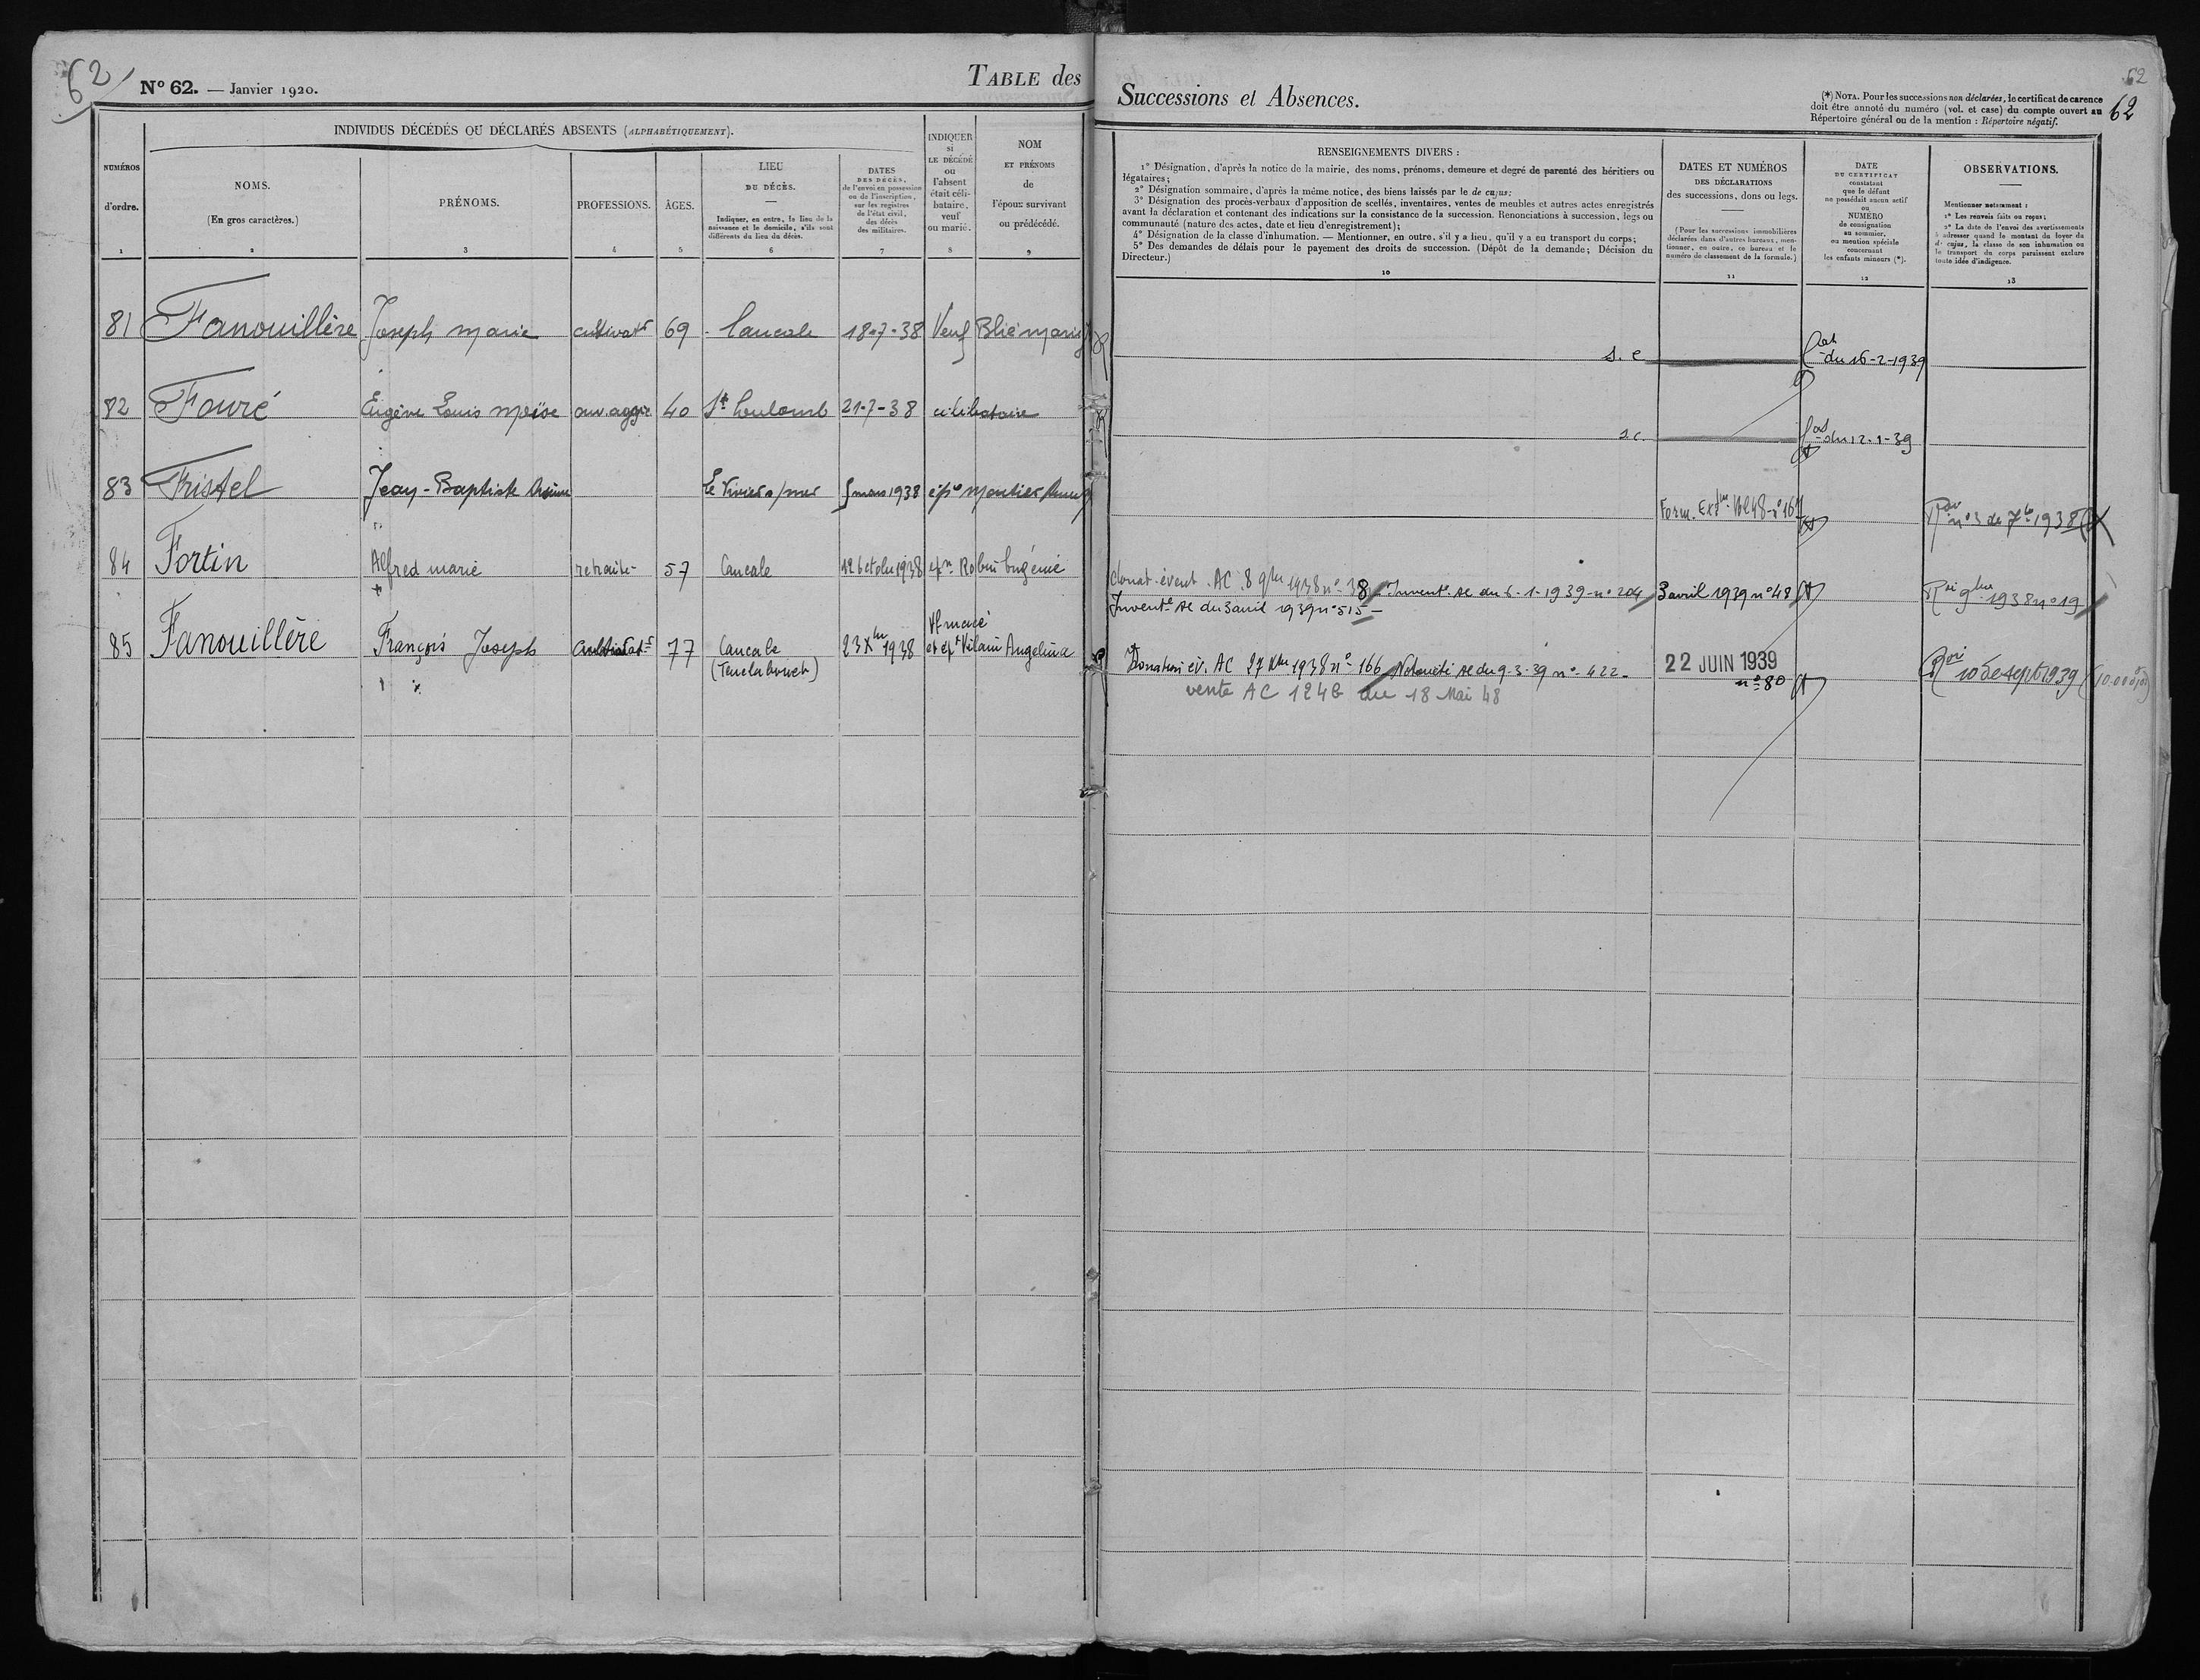 62
N° 62. — Janvier 1920.
TABLE des Successions et Absences.
62
(*) NOTA. Pour les successions non déclarées, le certificat de carence
doit être annoté du numéro (vol. et case) du compte ouvert au
Répertoire général ou de la mention : Répertoire négatif.
62
INDIVIDUS DÉCÉDÉS OU DÉCLARÉS ABSENTS (ALPHABÉTIQUEMENT).
NUMÉROS
d'ordre.
1
NOMS.
(En gros caractères.)
2
PRÉNOMS.
3
PROFESSIONS.
4
ÂGES.
5
LIEU
DU DÉCÈS.
Indiquer, en outre, le lieu de la
naissance et le domicile, s'ils sont
différents du lieu du décès.
6
DATES
DES DÉCÈS,
de l'envoi en possession
ou de l'inscription,
sur les registres
de l'état civil,
des décès
des militaires.
7
INDIQUER
si
LE DÉCÉDÉ
ou
l'absent
était céli-
bataire,
veuf
ou marié.
8
NOM
ET PRÉNOMS
de
l'époux survivant
ou prédécédé.
9
RENSEIGNEMENTS DIVERS :
1° Désignation, d'après la notice de la mairie, des noms, prénoms, demeure et degré de parenté des héritiers ou
légataires;
2° Désignation sommaire, d'après la même notice, des biens laissés par le de cujus;
3° Désignation des procès-verbaux d'apposition de scellés, inventaires, ventes de meubles et autres actes enregistrés
avant la déclaration et contenant des indications sur la consistance de la succession. Renonciations à succession, legs ou
communauté (nature des actes, date et lieu d'enregistrement);
4° Désignation de la classe d'inhumation. — Mentionner, en outre, s'il y a lieu, qu'il y a eu transport du corps;
5° Des demandes de délais pour le payement des droits de succession. (Dépôt de la demande; Décision du
Directeur.)
10
DATES ET NUMÉROS
DES DÉCLARATIONS
des successions, dons ou legs.
(Pour les successions immobilières
déclarées dans d'autres bureaux, men-
tionner, en outre, ce bureau et le
numéro de classement de la formule.)
11
DATE
DU CERTIFICAT
constatant
que le défunt
ne possédait aucun actif
ou
NUMÉRO
de consignation
au sommier,
ou mention spéciale
concernant
les enfants mineurs (*).
12
OBSERVATIONS.
Mentionner notamment :
1° Les renvois faits ou reçus;
2° La date de l'envoi des avertissements
à adresser quand le montant du loyer du
de cujus, la classe de son inhumation ou
le transport du corps paraissent exclure
toute idée d'indigence.
13
81 Fanouillère Joseph Marie cultivatr 69 Cancale 18-7-38 Veuf Blié Marie
s.c. du 16-2-1939
82 Fouré Eugène Louis Moïse ouv. aggre 40 St Coulomb 21-7-38 célibataire
s.c. du 12-1-39
83 Fristel Jean-Baptiste Le Vivier s/mer 5 mars 1938 Montier
Form. Extre Vol 48 - n° n° 3 de 7bre 1938
84 Fortin Alfred marie retraité 57 Cancale 26 octobre 1938 Robin Eugénie
donat. évent. AC 8 9bre 1938 n° 38 Inventre se du 6-1-1939 - n° 204 3 avril 1939 n° 48 9bre 1938 n° 19
Inventre se du 3 avril 1939 n° 515 —
85 Fanouillère François Joseph cultivatr 77 Cancale 23 Xbre 1938 et epx Vilain Angelina
Donation ev. AC 27 Xbre 1938 n° 166 Notoriété se du 9-3-39 n° 422 - 22 JUIN 1939
n° 80 10 de sept 1939
vente AC 1246 du 18 Mai 48